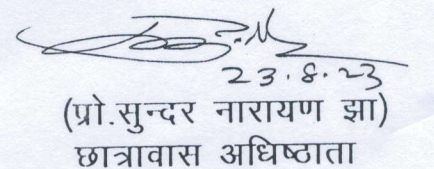 23.8.23
(प्रो.सुन्दर नारायण झा)
छात्रावास अधिष्ठाता